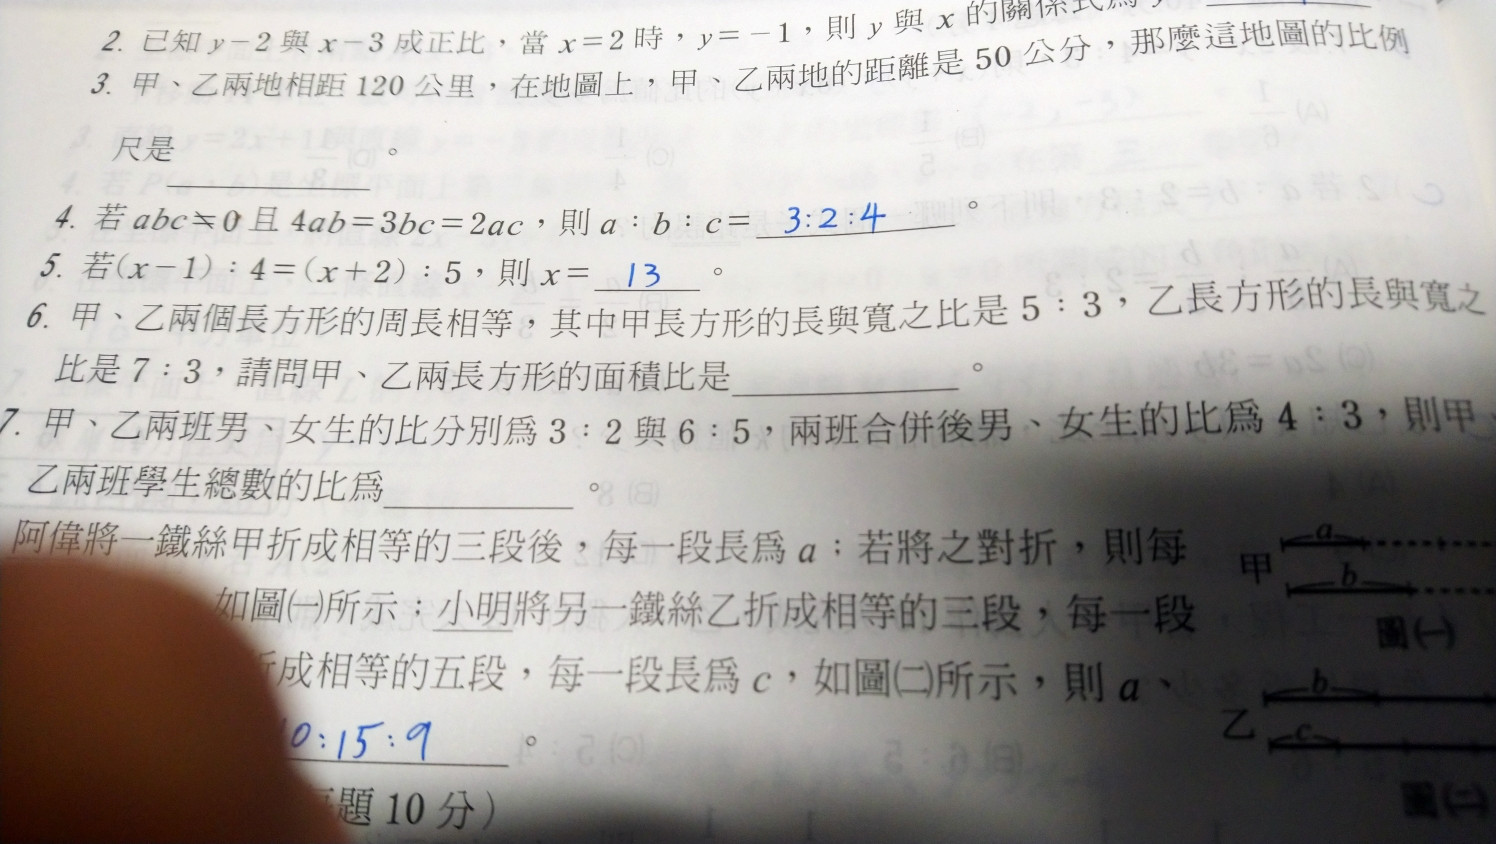 2. 已知 y－2 與 x－3 成正比，當 x＝2 時，y＝－1，則 y 與 x 的關係式為
3. 甲、乙兩地相距 120 公里，在地圖上，甲、乙兩地的距離是 50 公分，那麼這地圖的比例
尺是 。
4. 若 abc≠0 且 4ab＝3bc＝2ac，則 a：b：c＝ 3:2:4 。
5. 若(x－1)：4＝(x＋2)：5，則 x＝ 13 。
6. 甲、乙兩個長方形的周長相等，其中甲長方形的長與寬之比是 5：3，乙長方形的長與寬之
比是 7：3，請問甲、乙兩長方形的面積比是 。
7. 甲、乙兩班男、女生的比分別為 3：2 與 6：5，兩班合併後男、女生的比為 4：3，則甲
乙兩班學生總數的比為 。
阿偉將一鐵絲甲折成相等的三段後，每一段長為 a；若將之對折，則每
如圖㈠所示；小明將另一鐵絲乙折成相等的三段，每一段
折成相等的五段，每一段長為 c，如圖㈡所示，則 a、
0:15:9 。
題 10 分）
甲 a
b
圖㈠
乙 b
c
圖㈡